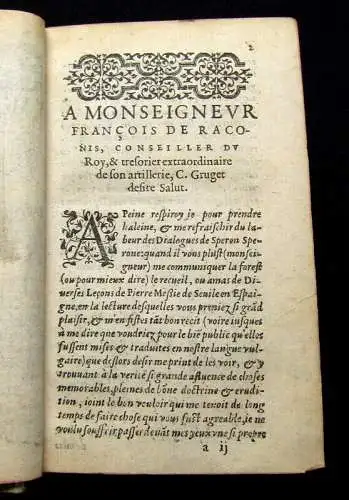 2
A MONSEIGNEVR
FRANÇOIS DE RACO-
NIS, CONSEILLER DV
Roy, & tresorier extraordinaire
de son artillerie, C. Gruget
desire Salut.
A Peine respiroy je pour prendre
haleine, & me refraischir du la-
beur des Dialogues de Speron Spe-
rone: quand il vous plust (monsei-
gneur) me communiquer la forest
(ou pour mieux dire) le recueil, ou amas de Di-
uerses Leçons de Pierre Messie de Seuile en Espai-
gne, en la lecture desquelles vous preniez si grãd
plaisir, & m'en fistes tãt bon recit (voire iusques
à me dire que voudriez pour le biẽ public qu'elles
fussent mises & traduites en nostre langue vul-
gaire) que deslors desir me print de les voir, & y
trouuant à la verité si grande affluence de choses
memorables, pleines de bõne doctrine & erudi-
tion, ioint le bon vouloir qui me tenoit de long
temps de faire chose qui vous fust agreable, je ne
voulu souffrir passer deuãt mes yeux vne si propre
a ij